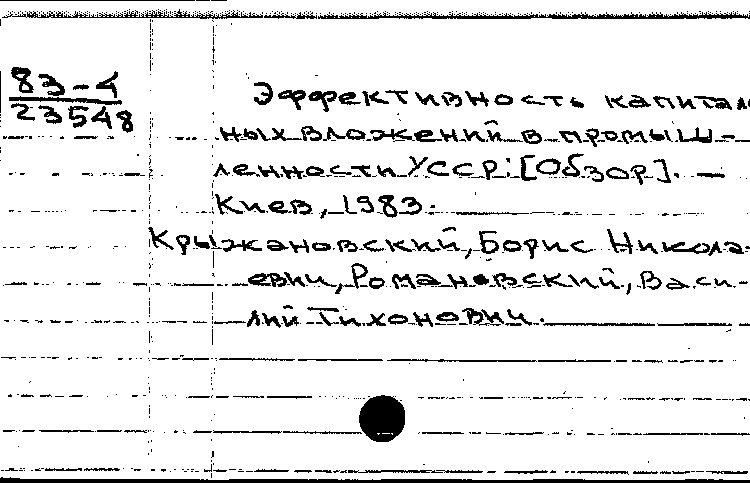 83-4
23548
Эффективность капиталь
ных вложений в промыш-
ленности УССР: [Обзор]. —
Киев, 1983.
Крыжановский, Борис Никола-
евич, Романовский, Васи-
лий Тихонович.